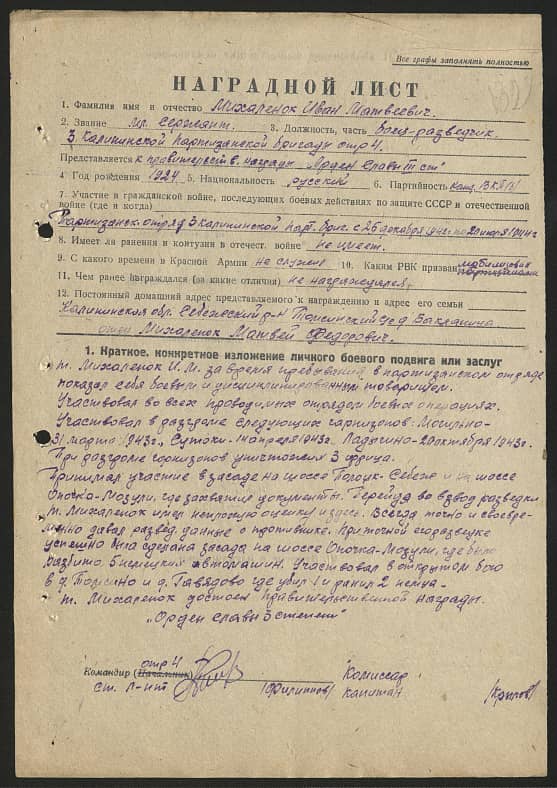 Все графы заполнять полностью
НАГРАДНОЙ ЛИСТ
1. Фамилия имя и отчество Михаленок Иван Матвеевич.
2. Звание мл. сержант. 3. Должность, часть боец-разведчик.
3 Калининской партизанской бригады отр 4.
Представляется к правительств. награде "Орден Славы III ст"
4 Год рождения 1924 5. Национальность русский 6. Партийность канд. ВКП(б)
7. Участие в гражданской войне, последующих боевых действиях по защите СССР и отечественной
войне (где и когда)
Партизанск. отряд 3 Калининской парт. бриг. с 26 декабря 1942г по 20 июля 1944г
8. Имеет ли ранения и контузии в отечест. войне не имеет.
9. С какого времени в Красной Армии не служил 10. Каким РВК призван мобилизован
партизанами
11. Чем ранее награждался (за какие отличия) не награждался
12. Постоянный домашний адрес представляемого к награждению и адрес его семьи
Калининская обл. Себежский р-н Томсинский с/с д. Бакланица
отец Михаленок Матвей Федорович.
1. Краткое, конкретное изложение личного боевого подвига или заслуг
т. Михаленок И.М. за время пребывания в партизанском отряде
показал себя боевым и дисциплинированным товарищем.
Участвовал во всех проводимых отрядом боевых операциях.
Участвовал в разгроме следующих гарнизонов:
31 марта 1943г., Сутоки - 1 апреля 1943г. Ладыгино - 20 октября 1943г.
При разгроме гарнизонов уничтожил 3 фрица.
Принимал участие в засаде на шоссе Полоцк-Себеж и на шоссе
Опочка-Мозули, где захватил документы. Перейдя во взвод разведки
т. Михаленок имел неплохую оценку и здесь. Всегда точно и своевре-
менно давал развед. данные о противнике. При точной его разведке
успешно была сделана засада на шоссе Опочка-Мозули, где было
разбито 5 немецких автомашин. Участвовал в открытом бою
в д. Томсино и д. где убил 1 и ранил 2 немца.
т. Михаленок достоен правительственной награды.
"Орден славы 3 степени"
отр 4
Командир (Начальник)
ст. л-нт (Филиппов)
Комиссар
капитан (Крылов)